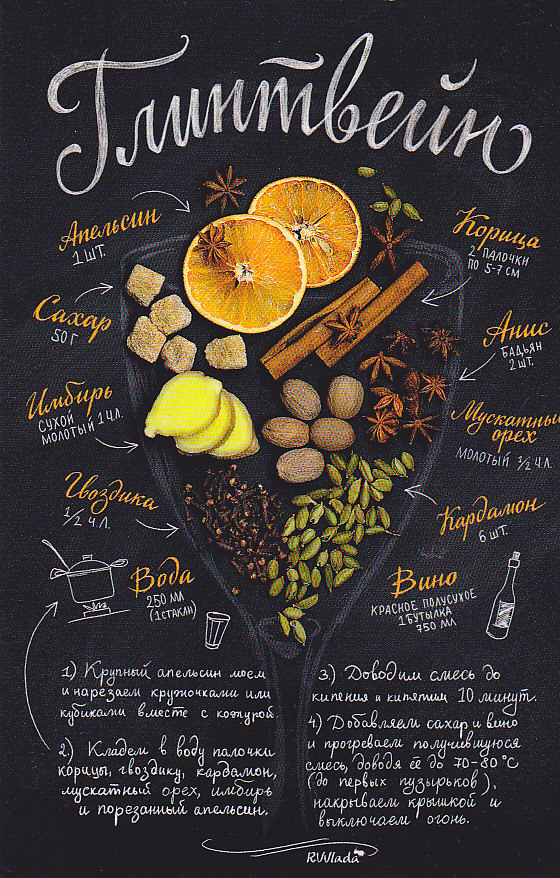 Глинтвейн
Апельсин
1 шт.
Корица
2 палочки
по 5-7 см
Сахар
50 г
Анис
бадьян
2 шт.
Имбирь
сухой
молотый 1 ч.л.
Мускатный
орех
молотый 1/2 ч.л.
Гвоздика
1/2 ч.л.
Кардамон
6 шт.
Вода
250 мл
(1 стакан)
Вино
красное полусухое
1 бутылка
750 мл
1) Крупный апельсин моем
и нарезаем кружочками или
кубиками вместе с кожурой.
2) Кладем в воду палочки
корицы, гвоздику, кардамон,
мускатный орех, имбирь
и порезанный апельсин.
3) Доводим смесь до
кипения и кипятим 10 минут.
4) Добавляем сахар и вино
и прогреваем получившуюся
смесь, доводя её до 70-80 °С
(до первых пузырьков),
накрываем крышкой и
выключаем огонь.
RVVlada